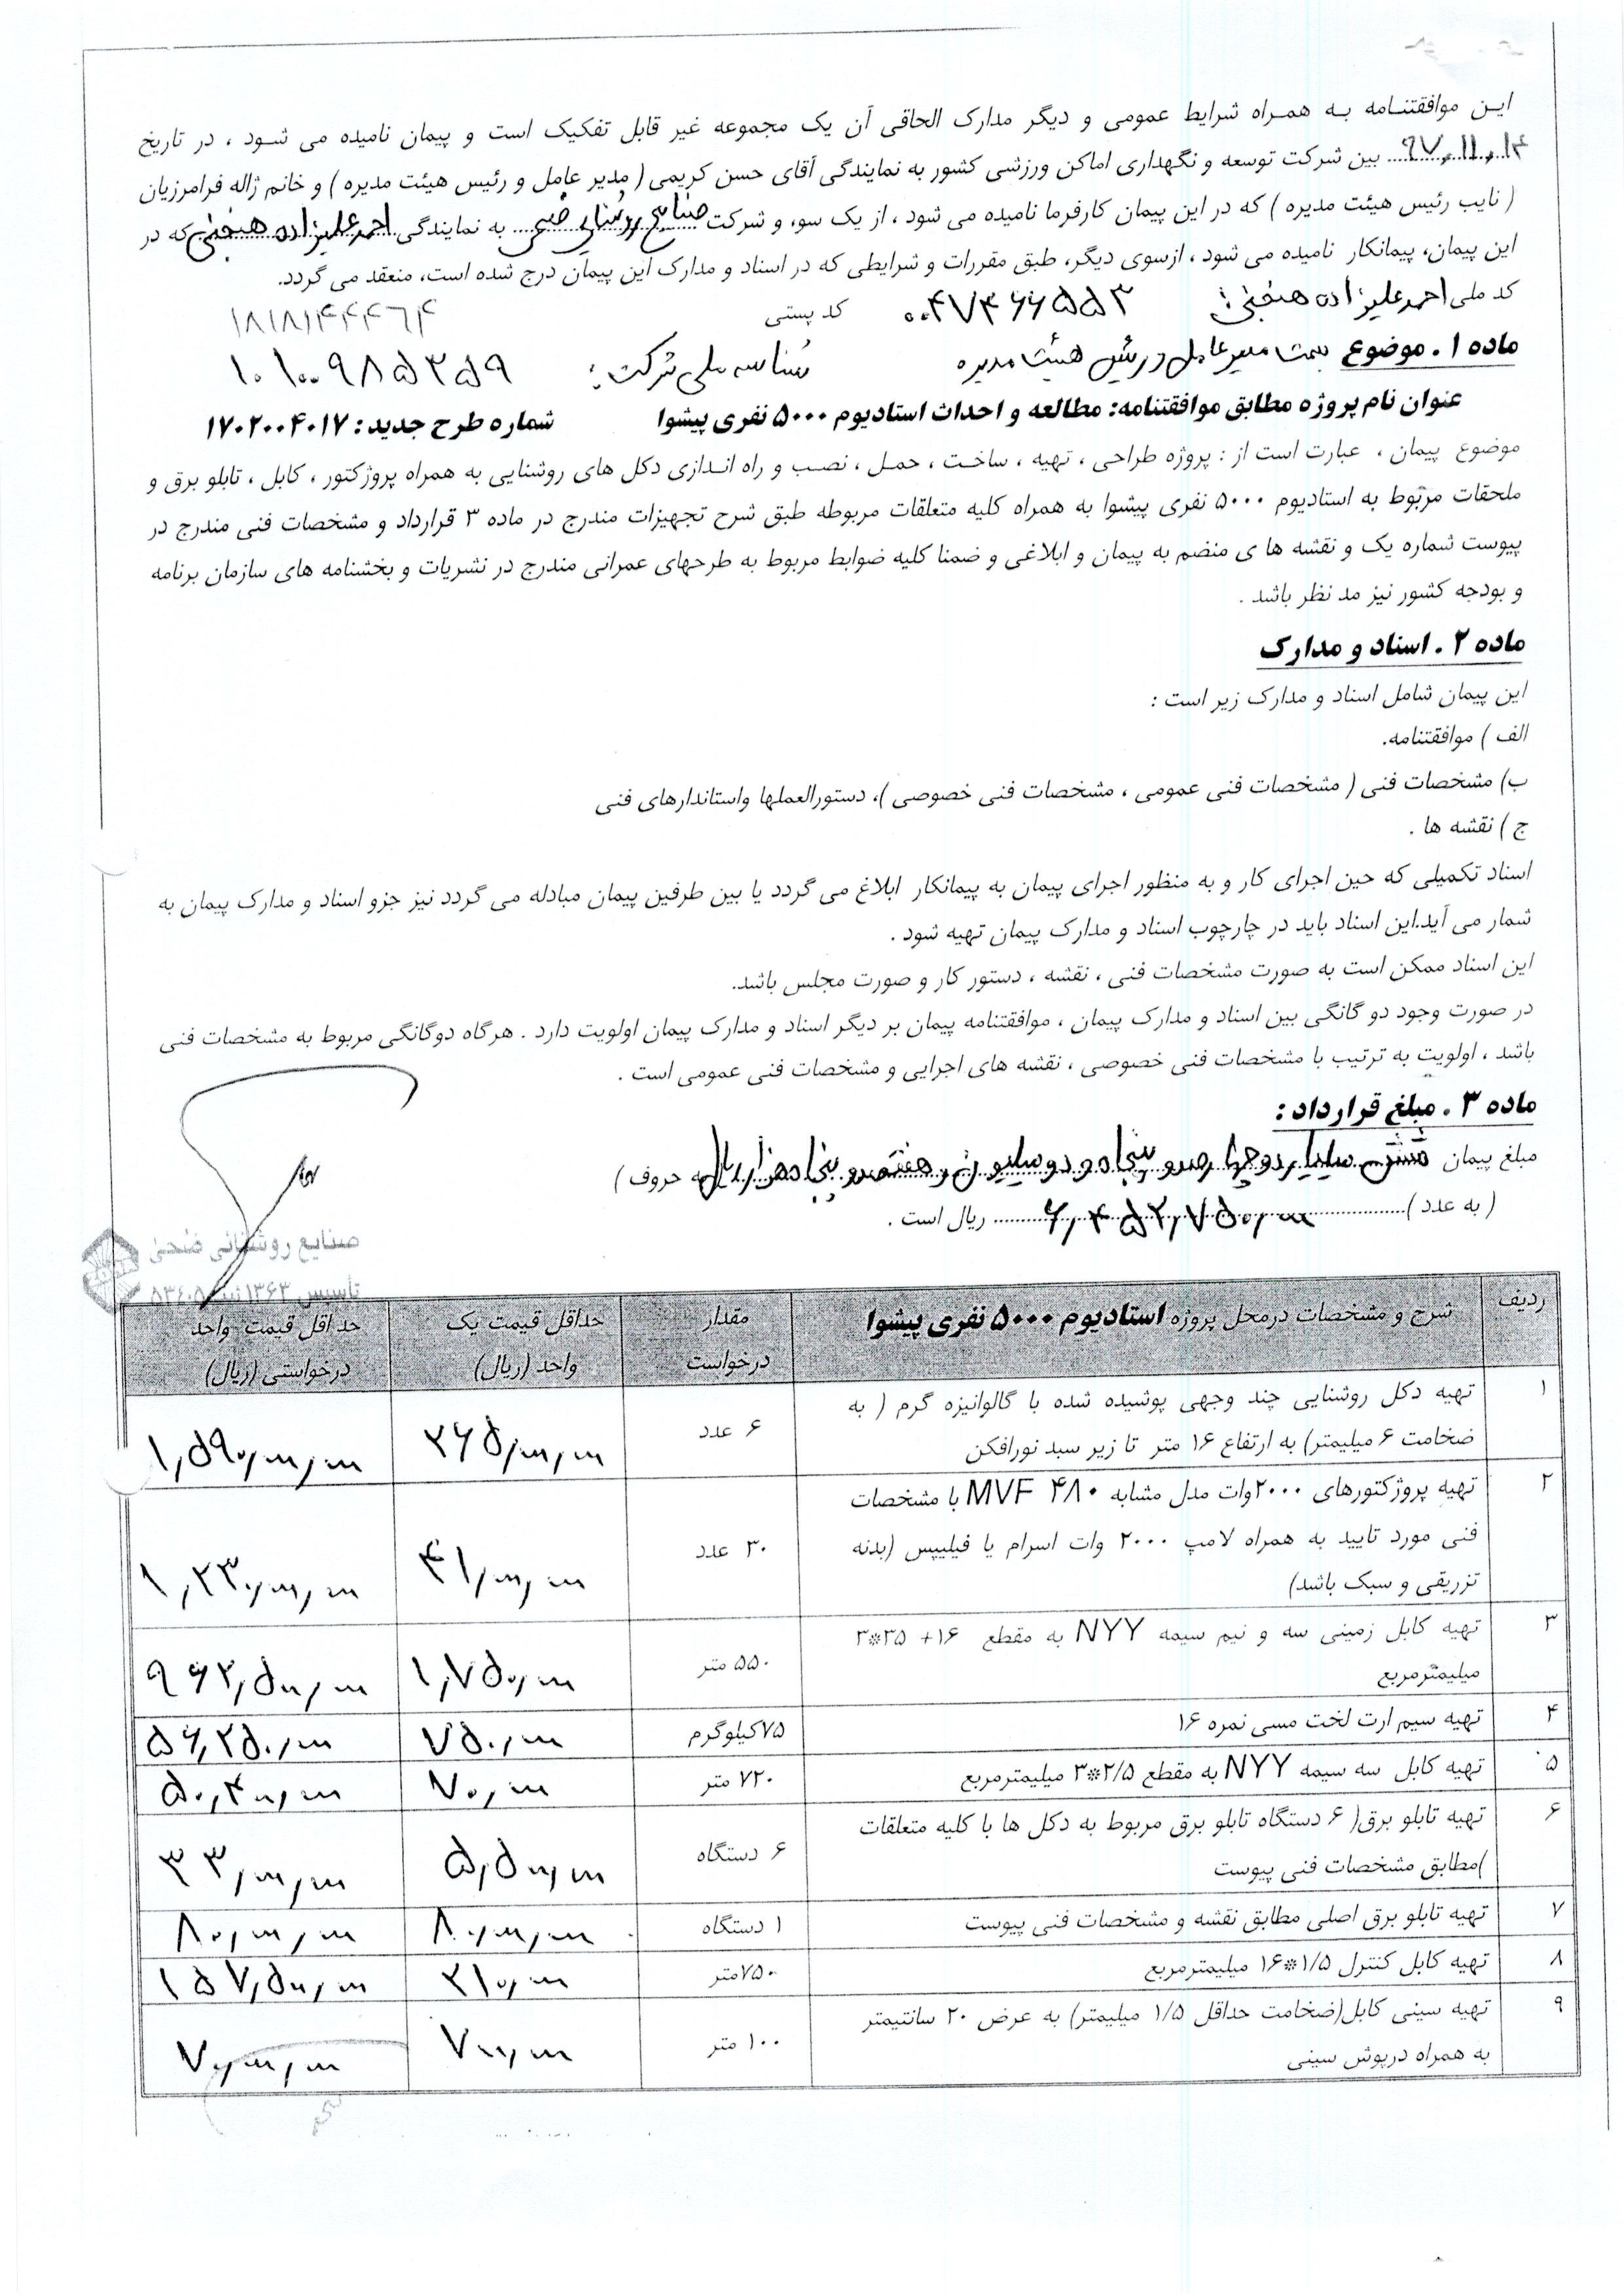 این موافقتنامه به همراه شرایط عمومی و دیگر مدارک الحاقی آن یک مجموعه غیر قابل تفکیک است و پیمان نامیده می شود ، در تاریخ
۹۷,۱۱,۱۴ بین شرکت توسعه و نگهداری اماکن ورزشی کشور به نمایندگی آقای حسن کریمی ( مدیر عامل و رئیس هیئت مدیره ) و خانم ژاله فرامرزیان
( نایب رئیس هیئت مدیره ) که در این پیمان کارفرما نامیده می شود ، از یک سو، و شرکت صنایع روشنایی ضحی به نمایندگی احمد علیزاده هنجنی که در
این پیمان، پیمانکار نامیده می شود ، ازسوی دیگر، طبق مقررات و شرایطی که در اسناد و مدارک این پیمان درج شده است، منعقد می گردد.
کد ملی احمد علیزاده هنجنی : کد پستی
ماده ۱ . موضوع سمت مدیرعامل و رئیس هیئت مدیره شناسه ملی شرکت : ۱۰۱۰۰۹۸۵۲۵۹
عنوان نام پروژه مطابق موافقتنامه: مطالعه و احداث استادیوم ۵۰۰۰ نفری پیشوا شماره طرح جدید : ۱۷۰۲۰۰۴۰۱۷
موضوع پیمان ، عبارت است از : پروژه طراحی ، تهیه ، ساخت ، حمل ، نصب و راه اندازی دکل های روشنایی به همراه پروژکتور ، کابل ، تابلو برق و
ملحقات مربوط به استادیوم ۵۰۰۰ نفری پیشوا به همراه کلیه متعلقات مربوطه طبق شرح تجهیزات مندرج در ماده ۳ قرارداد و مشخصات فنی مندرج در
پیوست شماره یک و نقشه ها ی منضم به پیمان و ابلاغی و ضمنا کلیه ضوابط مربوط به طرحهای عمرانی مندرج در نشریات و بخشنامه های سازمان برنامه
و بودجه کشور نیز مد نظر باشد .
ماده ۲ . اسناد و مدارک
این پیمان شامل اسناد و مدارک زیر است :
الف ) موافقتنامه.
ب) مشخصات فنی ( مشخصات فنی عمومی ، مشخصات فنی خصوصی )، دستورالعملها واستاندارهای فنی
ج ) نقشه ها .
اسناد تکمیلی که حین اجرای کار و به منظور اجرای پیمان به پیمانکار ابلاغ می گردد یا بین طرفین پیمان مبادله می گردد نیز جزو اسناد و مدارک پیمان به
شمار می آید.این اسناد باید در چارچوب اسناد و مدارک پیمان تهیه شود .
این اسناد ممکن است به صورت مشخصات فنی ، نقشه ، دستور کار و صورت مجلس باشد.
در صورت وجود دو گانگی بین اسناد و مدارک پیمان ، موافقتنامه پیمان بر دیگر اسناد و مدارک پیمان اولویت دارد . هرگاه دوگانگی مربوط به مشخصات فنی
باشد ، اولویت به ترتیب با مشخصات فنی خصوصی ، نقشه های اجرایی و مشخصات فنی عمومی است .
ماده ۳ . مبلغ قرارداد :
مبلغ پیمان شش میلیارد و چهارصد و پنجاه و دو میلیون و هفتصد و پنجاه هزار ریال به حروف )
( به عدد ) ۶,۴۵۲,۷۵۰,۰۰۰ ریال است .
صنایع روشنائی ضحی
تأسیس ۱۳۶۳ ثبت ۵۳۶۰۵
ردیف شرح و مشخصات درمحل پروژه استادیوم ۵۰۰۰ نفری پیشوا مقدار درخواست حداقل قیمت یک واحد (ریال) حداقل قیمت واحد درخواستی (ریال)
۱ تهیه دکل روشنایی چند وجهی پوشیده شده با گالوانیزه گرم ( به
ضخامت ۶ میلیمتر) به ارتفاع ۱۶ متر تا زیر سبد نورافکن ۶ عدد ۲۶۵,۰۰۰,۰۰۰ ۱,۵۹۰,۰۰۰,۰۰۰
۲ تهیه پروژکتورهای ۲۰۰۰وات مدل مشابه MVF ۴۸۰ با مشخصات
فنی مورد تایید به همراه لامپ ۲۰۰۰ وات اسرام یا فیلیپس (بدنه
تزریقی و سبک باشد) ۳۰ عدد ۴۱,۰۰۰,۰۰۰ ۱,۲۳۰,۰۰۰,۰۰۰
۳ تهیه کابل زمینی سه و نیم سیمه NYY به مقطع ۱۶+ ۳*۳۵
میلیمترمربع ۵۵۰ متر ۱,۷۵۰,۰۰۰ ۹۶۲,۵۰۰,۰۰۰
۴ تهیه سیم ارت لخت مسی نمره ۱۶ ۷۵کیلوگرم ۷۵۰,۰۰۰ ۵۶,۲۵۰,۰۰۰
۵ تهیه کابل سه سیمه NYY به مقطع ۳*۲/۵ میلیمترمربع ۷۲۰ متر ۷۰,۰۰۰ ۵۰,۴۰۰,۰۰۰
۶ تهیه تابلو برق( ۶ دستگاه تابلو برق مربوط به دکل ها با کلیه متعلقات
)مطابق مشخصات فنی پیوست ۶ دستگاه ۵,۵۰۰,۰۰۰ ۳۳,۰۰۰,۰۰۰
۷ تهیه تابلو برق اصلی مطابق نقشه و مشخصات فنی پیوست ۱ دستگاه ۸۰,۰۰۰,۰۰۰ ۸۰,۰۰۰,۰۰۰
۸ تهیه کابل کنترل ۱/۵*۱۶ میلیمترمربع ۷۵۰متر ۲۱۰,۰۰۰ ۱۵۷,۵۰۰,۰۰۰
۹ تهیه سینی کابل(ضخامت حداقل ۱/۵ میلیمتر) به عرض ۲۰ سانتیمتر
به همراه درپوش سینی ۱۰۰ متر ۷۰۰,۰۰۰ ۷۰,۰۰۰,۰۰۰